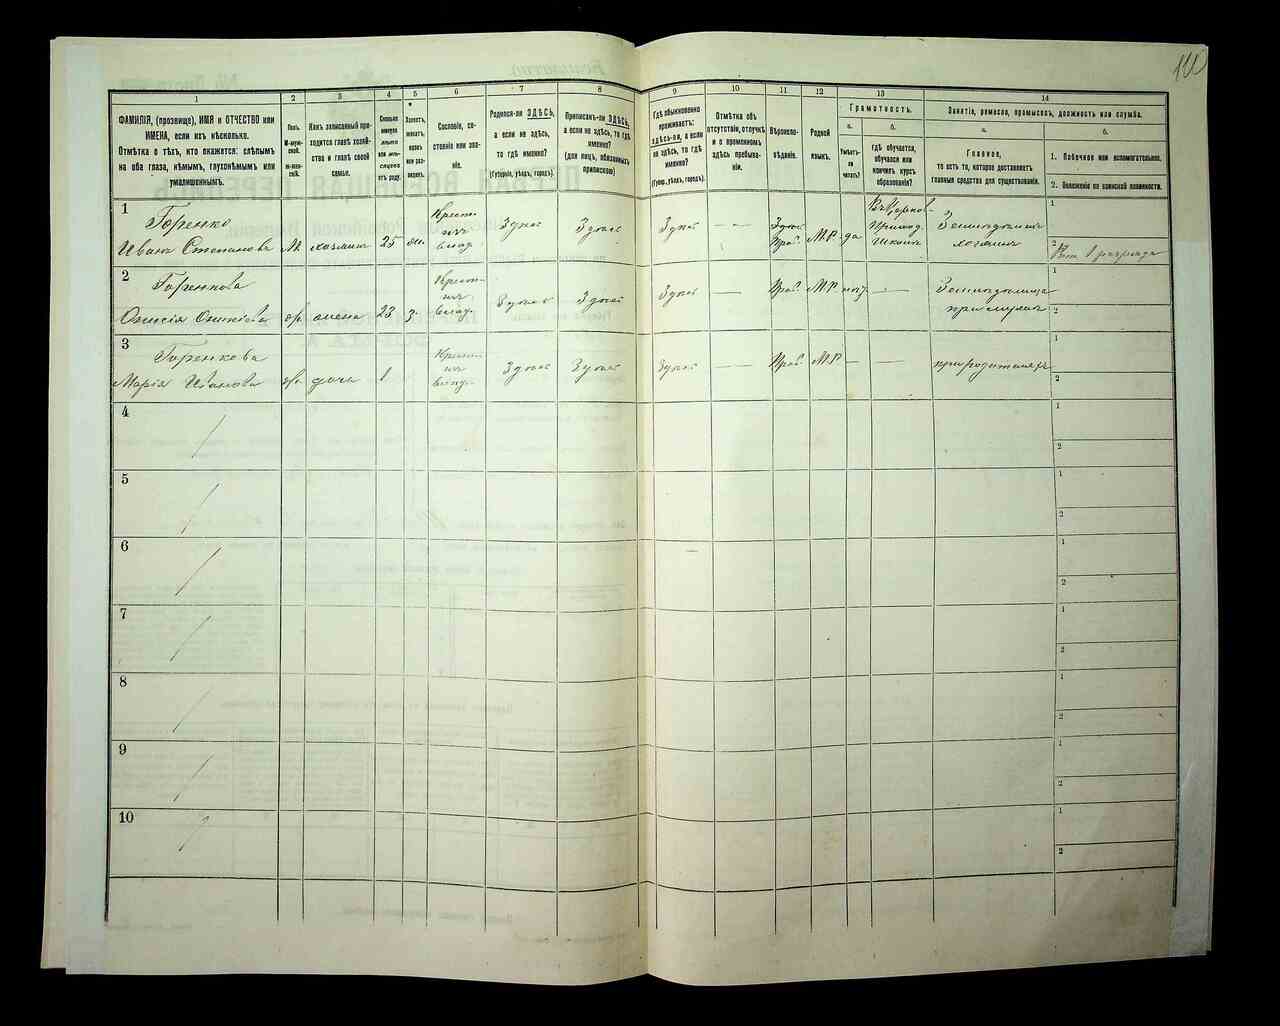 1 2 3 4 5 6 7 8 9 10 11 12 13 14
ФАМИЛІЯ, (прозвище), ИМЯ и ОТЧЕСТВО или
ИМЕНА, если ихъ нѣсколько.
Отмѣтка о тѣхъ, кто окажется: слѣпымъ
на оба глаза, нѣмымъ, глухонѣмымъ или
умалишеннымъ.
Полъ.
М-муж-
ской.
Ж-жен-
скій.
Какъ записанный при-
ходится главѣ хозяй-
ства и главѣ своей
семьи.
Сколько
минуло
лѣтъ
или мѣ-
сяцевъ
отъ роду.
Холостъ,
женатъ,
вдовъ
или раз-
веденъ.
Сословіе, со-
стояніе или зва-
ніе.
Родился-ли ЗДѢСЬ,
а если не здѣсь,
то гдѣ именно?
(Губернія, уѣздъ, городъ).
Приписанъ-ли ЗДѢСЬ,
а если не здѣсь, то гдѣ
именно?
(для лицъ, обязанныхъ
припискою)
Гдѣ обыкновенно
проживаетъ:
здѣсь-ли, а если
не здѣсь, то гдѣ
именно?
(Губер., уѣздъ, городъ).
Отмѣтка объ
отсутствіи, отлучкѣ
и о временномъ
здѣсь пребыва-
ніи.
Вѣроиспо-
вѣданіе.
Родной
языкъ.
Грамотность.
а.
Умѣетъ-
ли
читать?
б.
Гдѣ обучается,
обучался или
кончилъ курсъ
образованія?
Занятіе, ремесло, промыселъ, должность или служба.
а.
Главное,
то есть то, которое доставляетъ
главныя средства для существованія.
б.
1. Побочное или вспомогательное.
2. Положеніе по воинской повинности.
1
Горенко
Иванъ Степановъ М. хозяинъ 25 ж.
Крест-
нъ
влад.
Здѣсь Здѣсь Здѣсь — —
Прав. М.Р. да
Земледѣлецъ
хозяинъ
1
2
2
Горенкова
ж. жена 23 з.
Крест-
нъ
влад.
Здѣсь Здѣсь Здѣсь —
Прав. М.Р. нѣтъ —
1
2
3
Горенкова
Марія Иванова ж. дочь 1
Крест-
нъ
влад.
Здѣсь Здѣсь Здѣсь — —
Прав. М.Р. — —
1
2
4
1
2
5
1
2
6
1
2
7
1
2
8
1
2
9
1
2
10
1
2